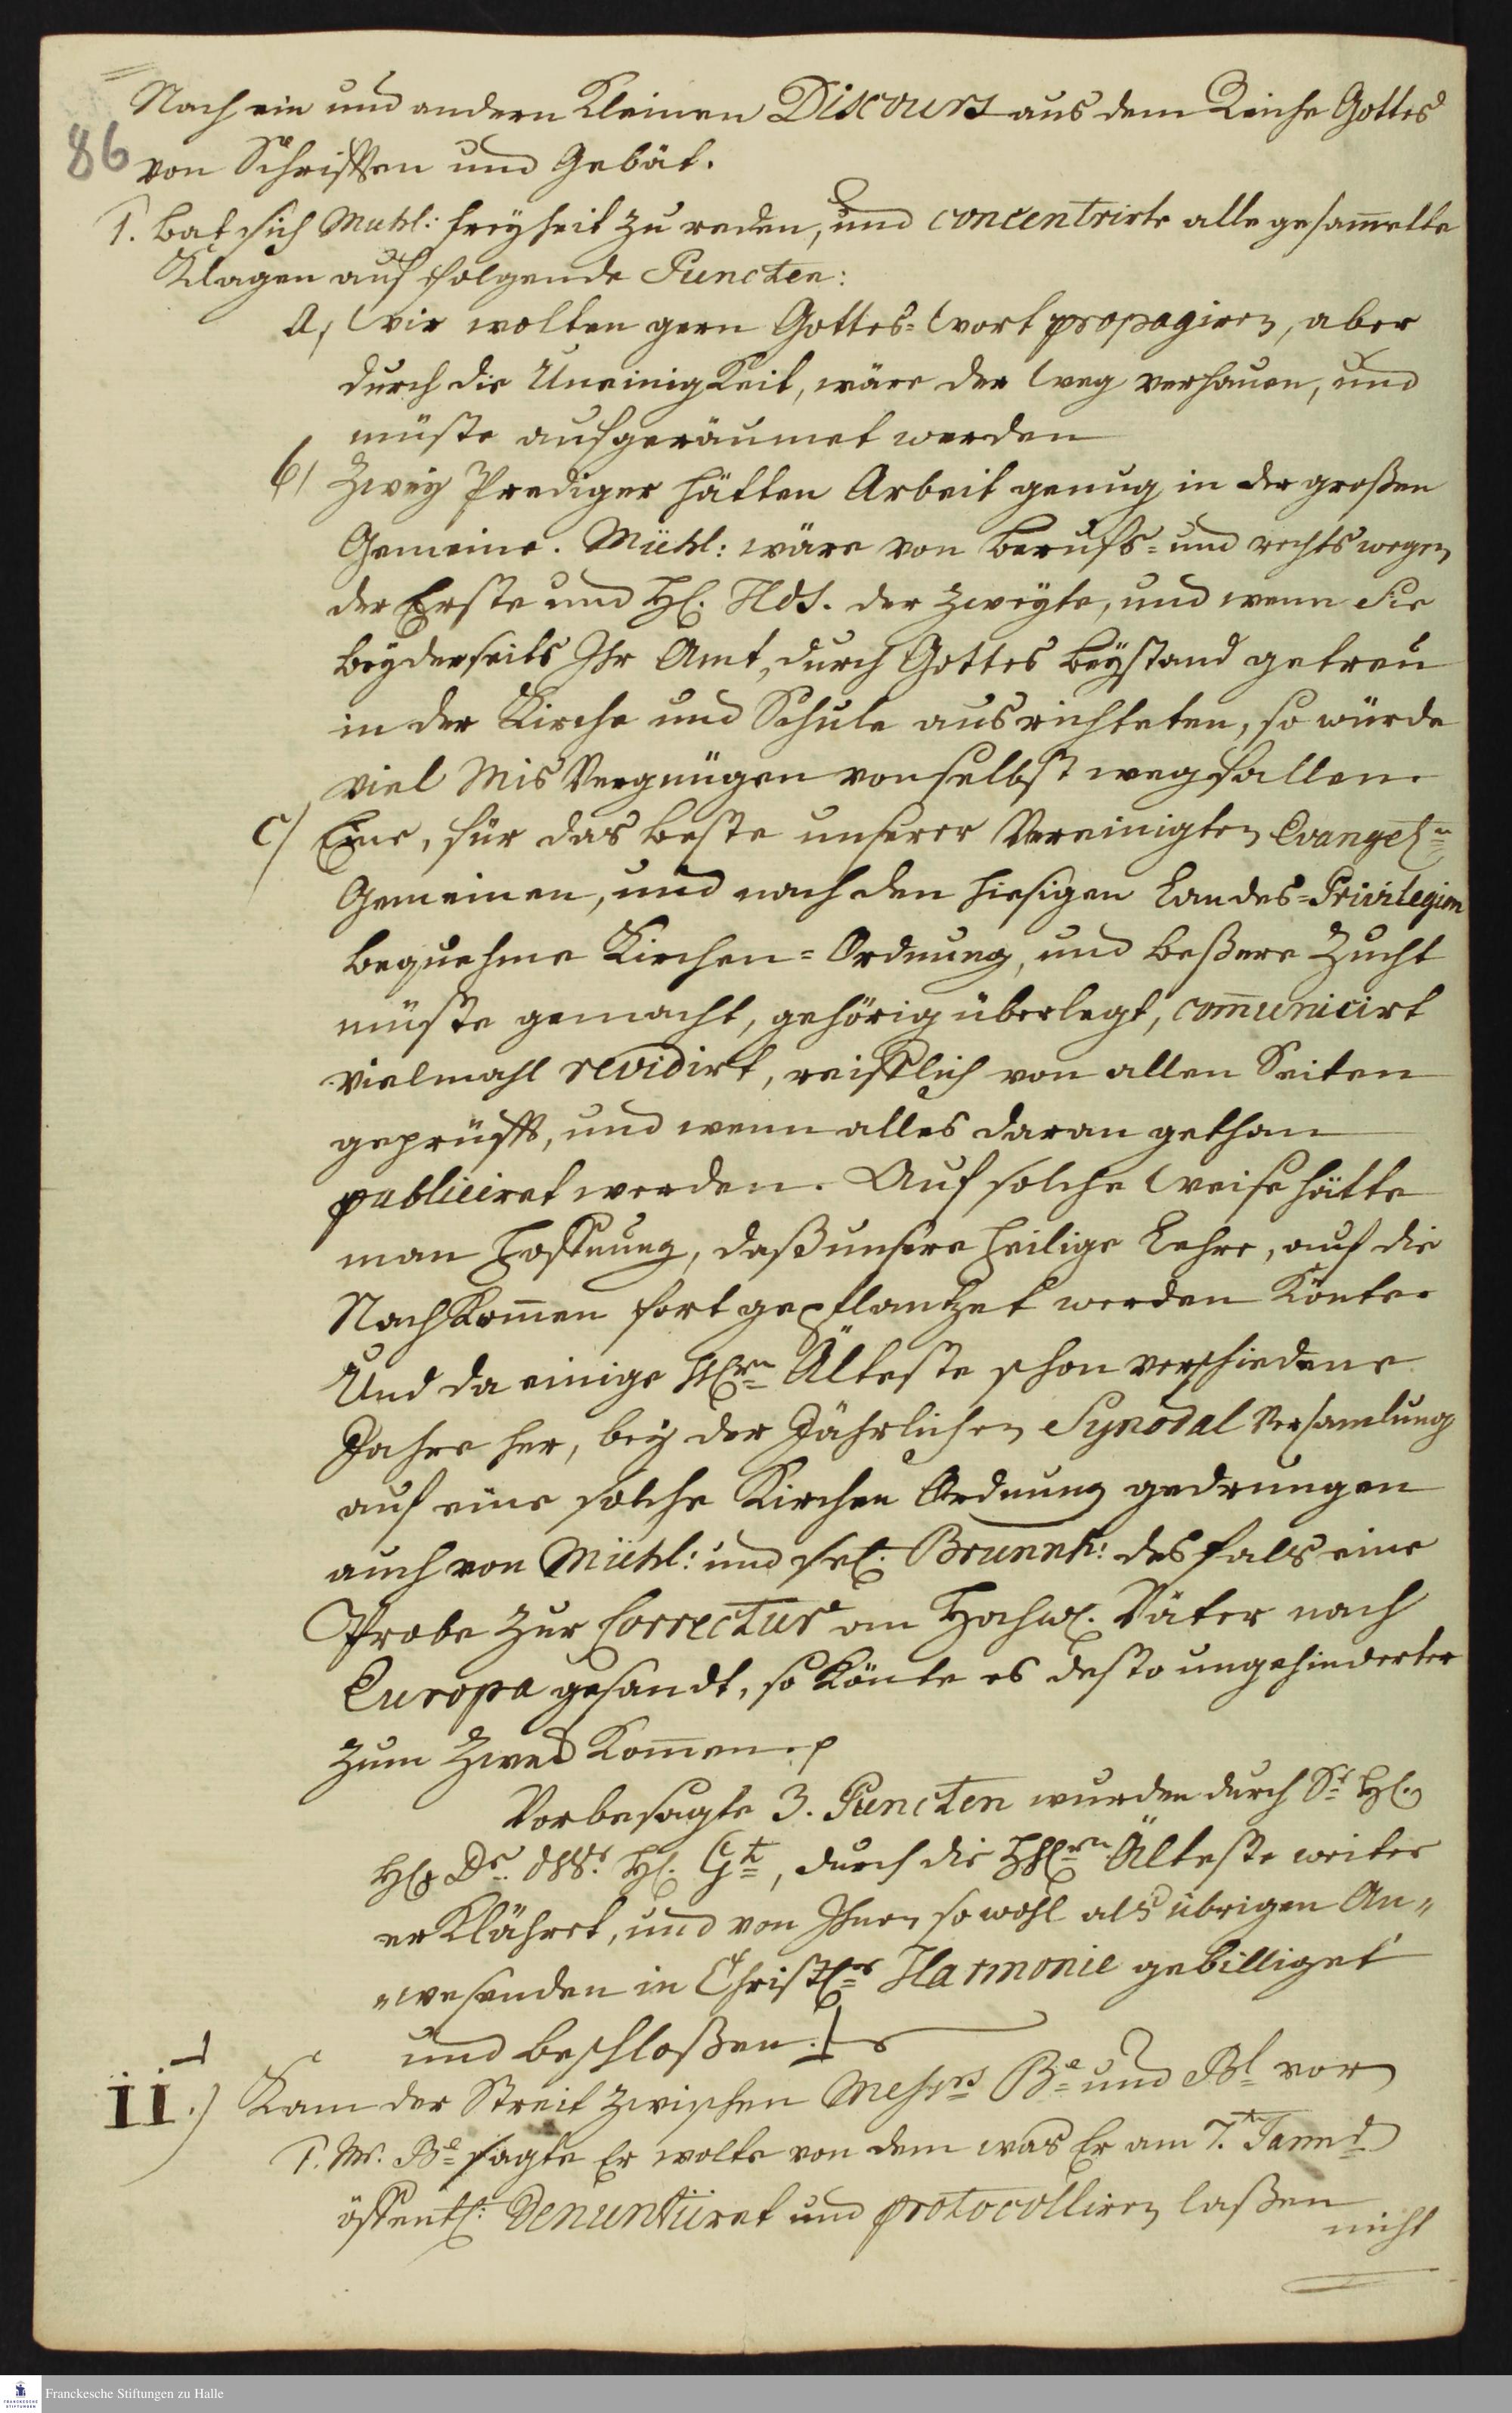 Nach ein und andern kleinen Discours aus dem Reiche Gottes
86
von Schrifften und Gebät.
1. bat sich Muhl: freyheit zu reden, und concentrirte alle gesam̄elte
Klagen auf folgende Puncten:
a, Wir wolten gern Gottes=Wort propagiren, aber
durch die Uneinigkeit, wäre der Weg verhauen, und
müste aufgeräumet werden
b) Zwey Prediger hätten Arbeit genug in der großen
Gemeine. Mühl: wäre von berufs= und rechts wegen
der Erste und H. Hds. der Zweyte, und wenn Sie
beyderseits Ihr Amt, durch Gottes beystand getreu
in der Kirche und Schule ausrichteten, so würde
viel Mis Vergnügen von selbst wegfallen.
c) Eine, für das beste unserer Vereinigten Evangel.n
Gemeinen, und nach den hiesigen Landes=Privilegien
bequehme Kirchen=Ordnung, und beßere Zucht
müste gemacht, gehörig überlegt, com̄unicirt
vielmahl revidirt, reifflich von allen Seiten
geprüfft, und wenn alles daran gethan
publiciret werden. Auf solche Weise hätte
man hoffnung, daß unsere heilige Lehre, auf die
Nachkom̄en fortgepflantzet werden könte.
Und da einige HErrn Älteste schon verschiedene
Jahre her, bey der Jährlichen Synodal Versamlung
auf eine solche Kirchen Ordnung gedrungen
auch von Mühl: und sel. Brunnh: desfals eine
Probe zur Correctur an Hochw. Väter nach
Europa gesandt, so könte es desto ungehinderter
zum Zweck kom̄en. p
Vorbesagte 3. Puncten wurden durch Sr H.
H. Dr. H. Gt, durch die HErrn Älteste weiter
erklähret, und von Ihnen so wohl als übrigen An„
„wesenden in Christl.r Harmonie gebilliget
und beschloßen.
ii.) Kam der Streit zwischen Messrs Be und Bl vor
1. Mr. Be sagte Er wolte von dem was Er am 7. Jann
öffentl: Denuntiiret und protocolliren laßen
nicht
Franckesche Stiftungen zu Halle